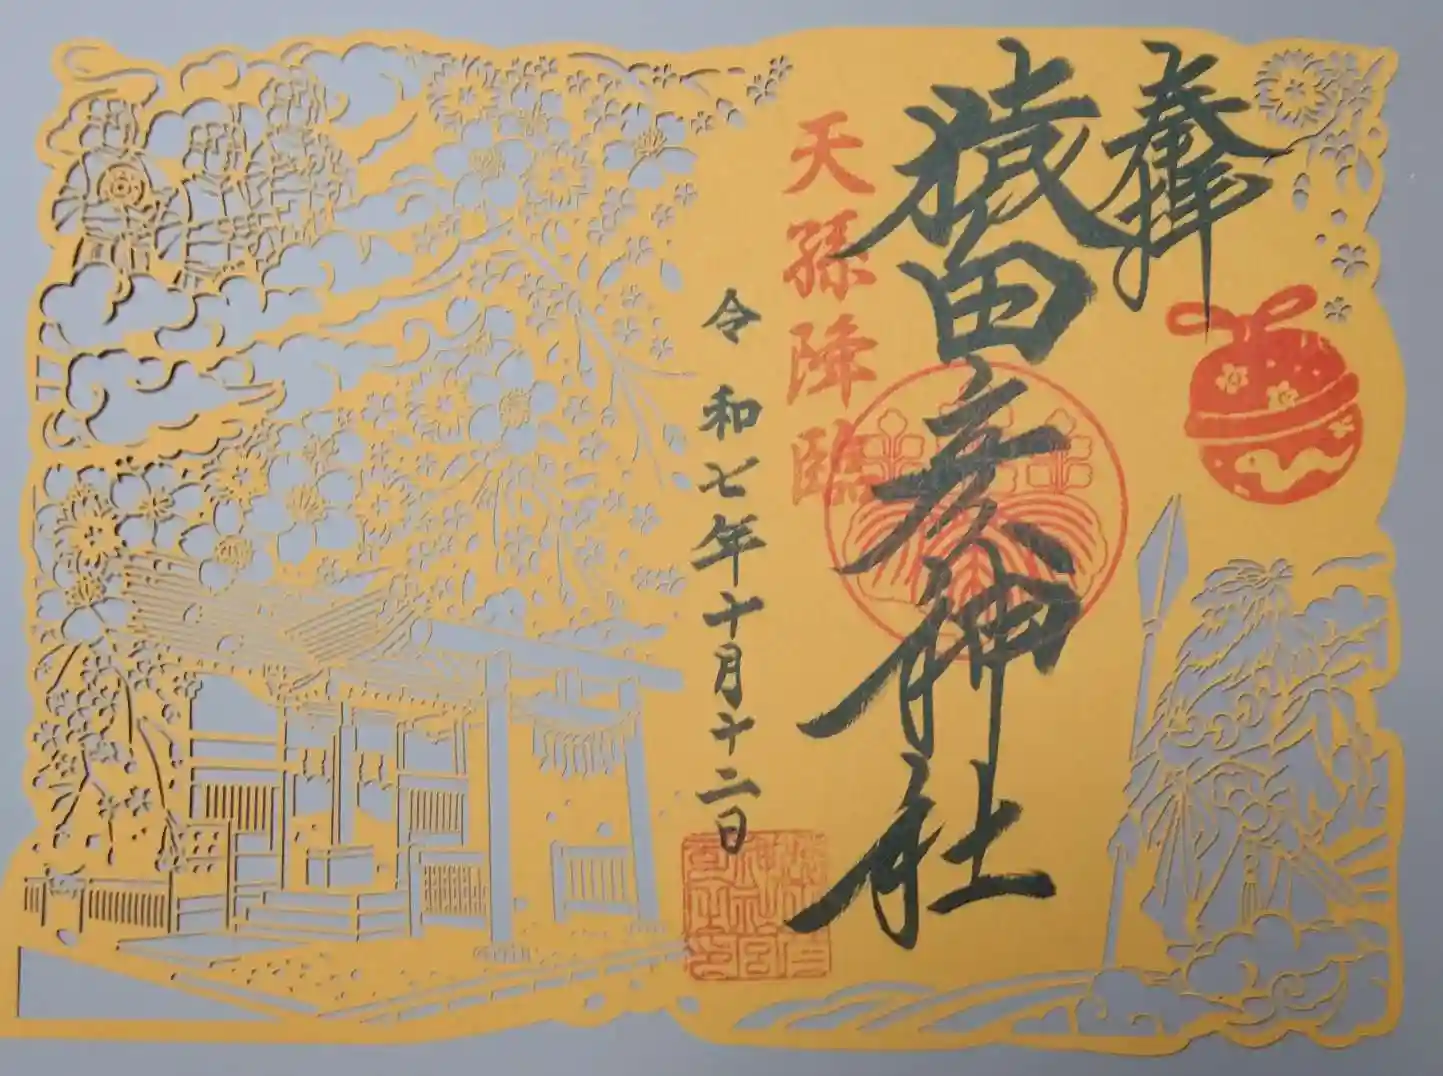 奉拝
猿田彦神社
天孫降臨
令和七年十月十二日